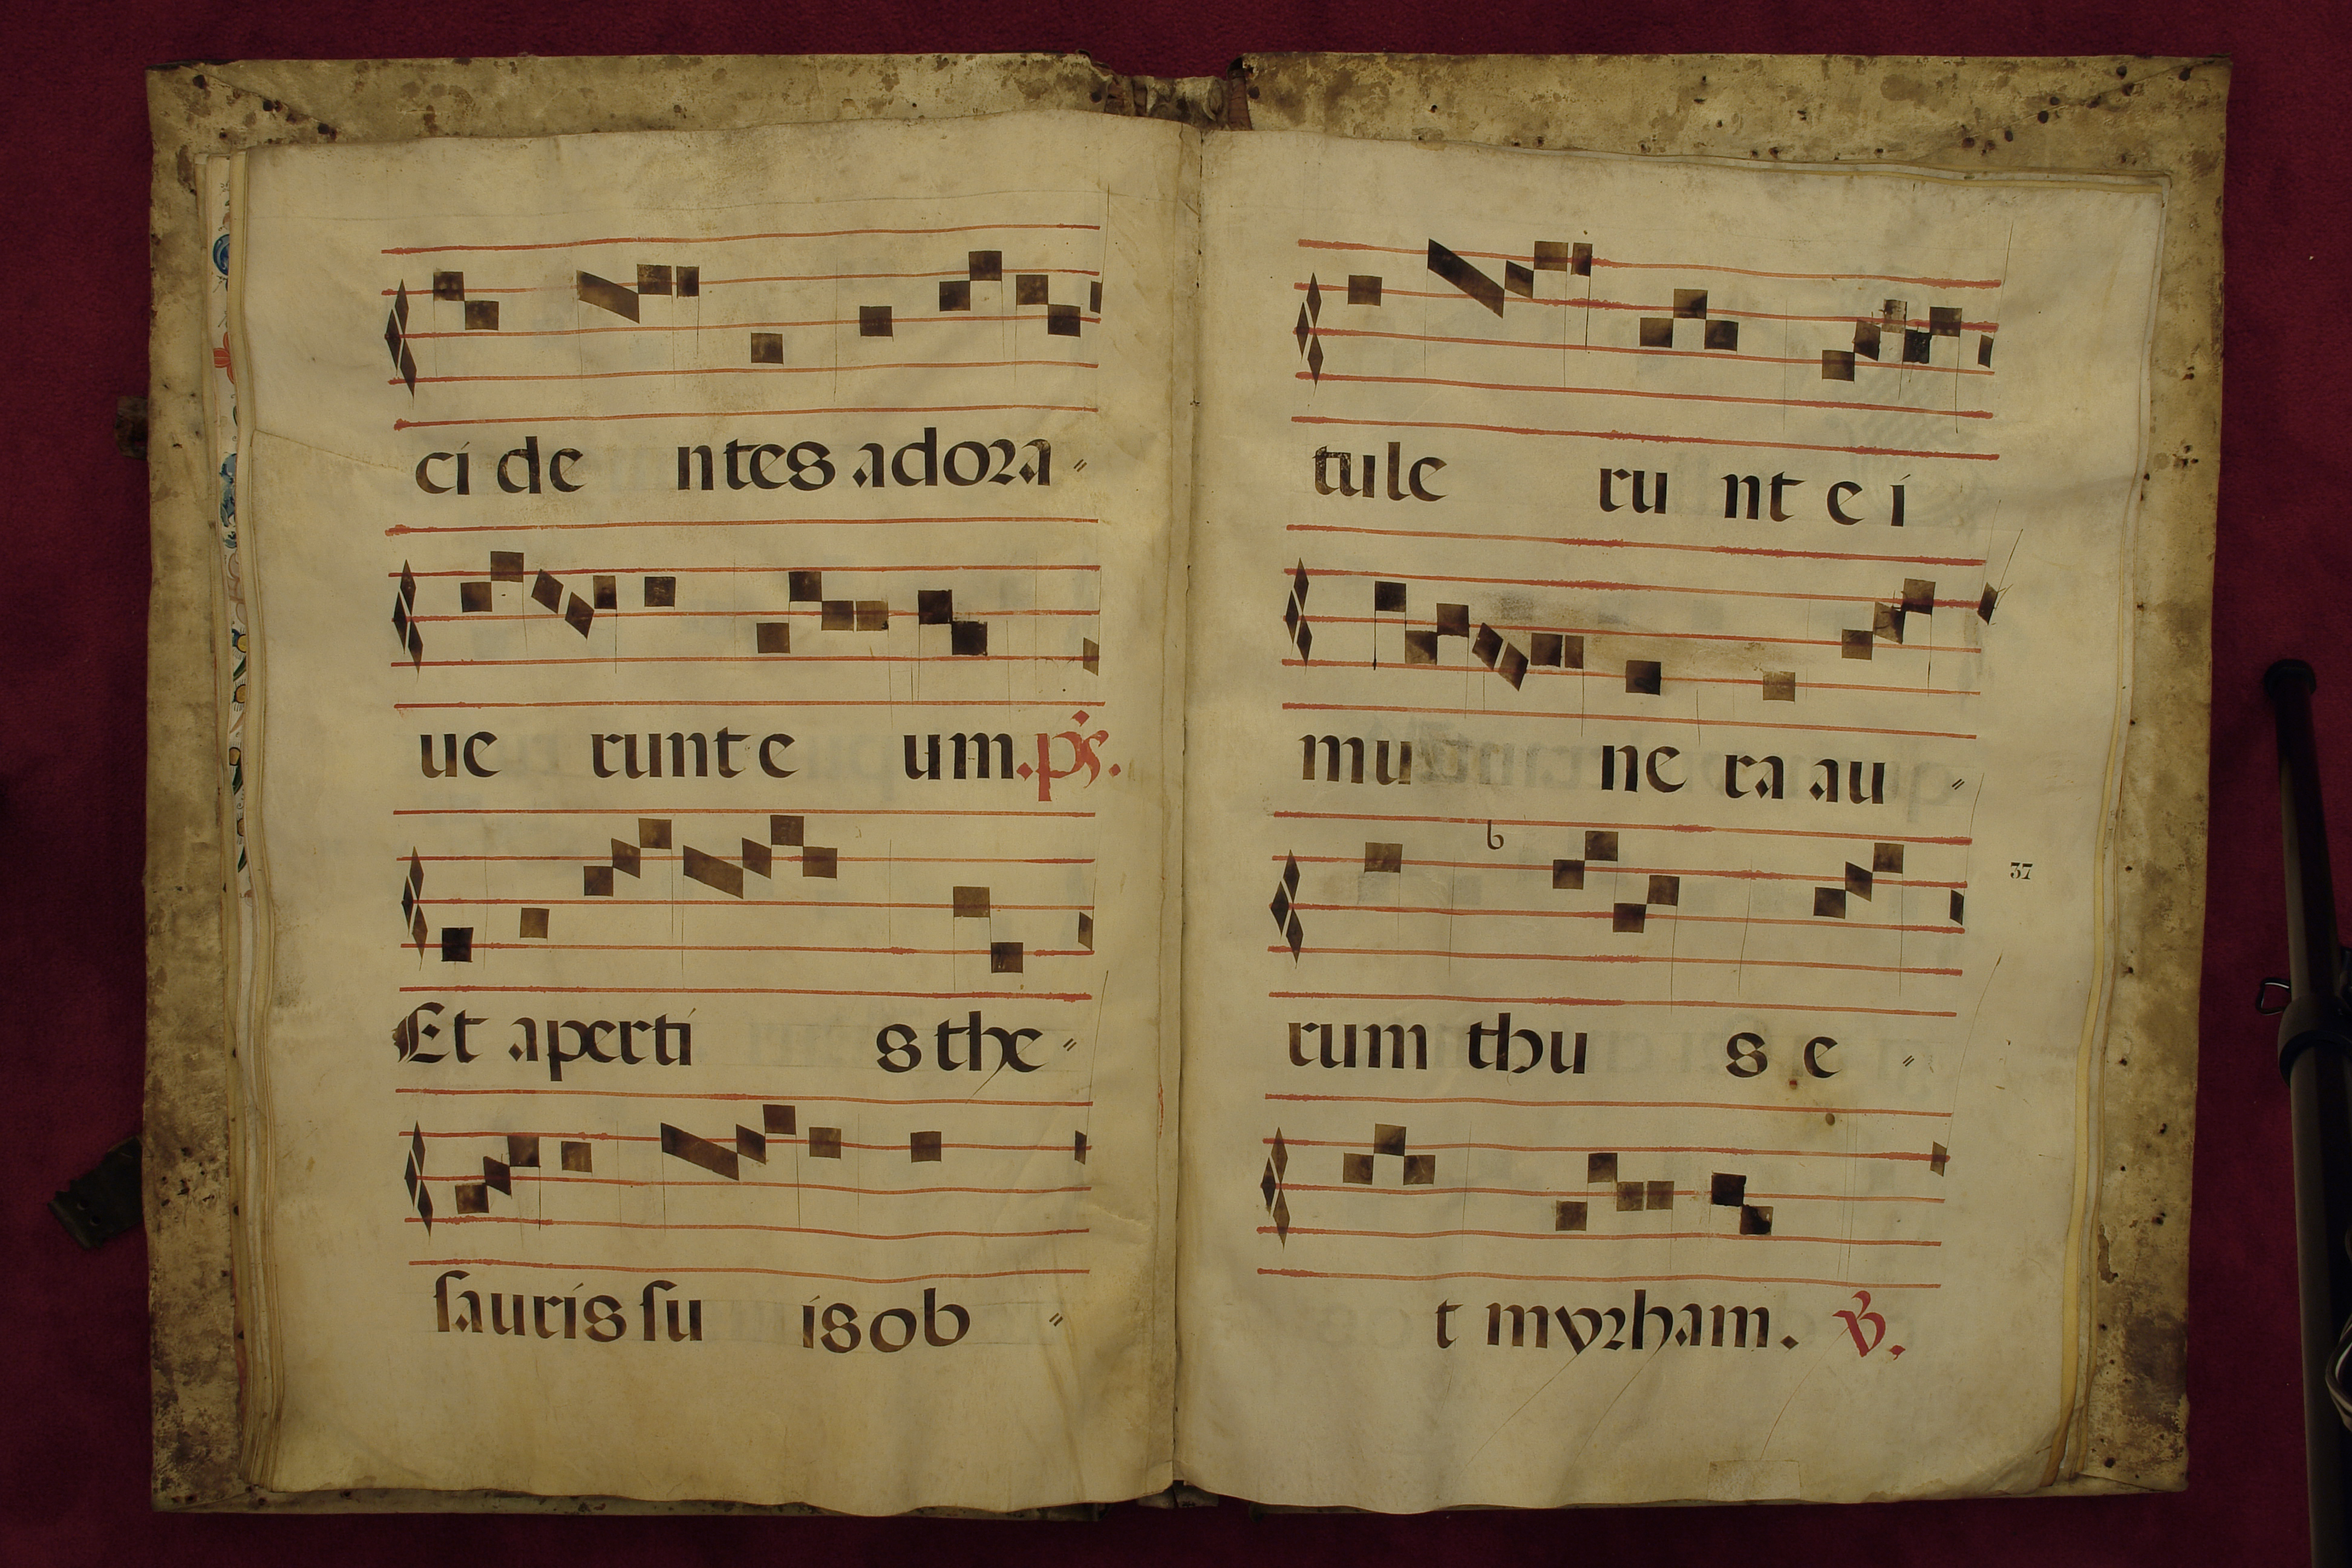 ci de ntes adora〃
ue runt e um. ps.
Et aperti s the〃
sauris su is ob〃
tule ru nt e i
mu ne ra au〃
b
37
rum thu s e〃
t myrham. V.